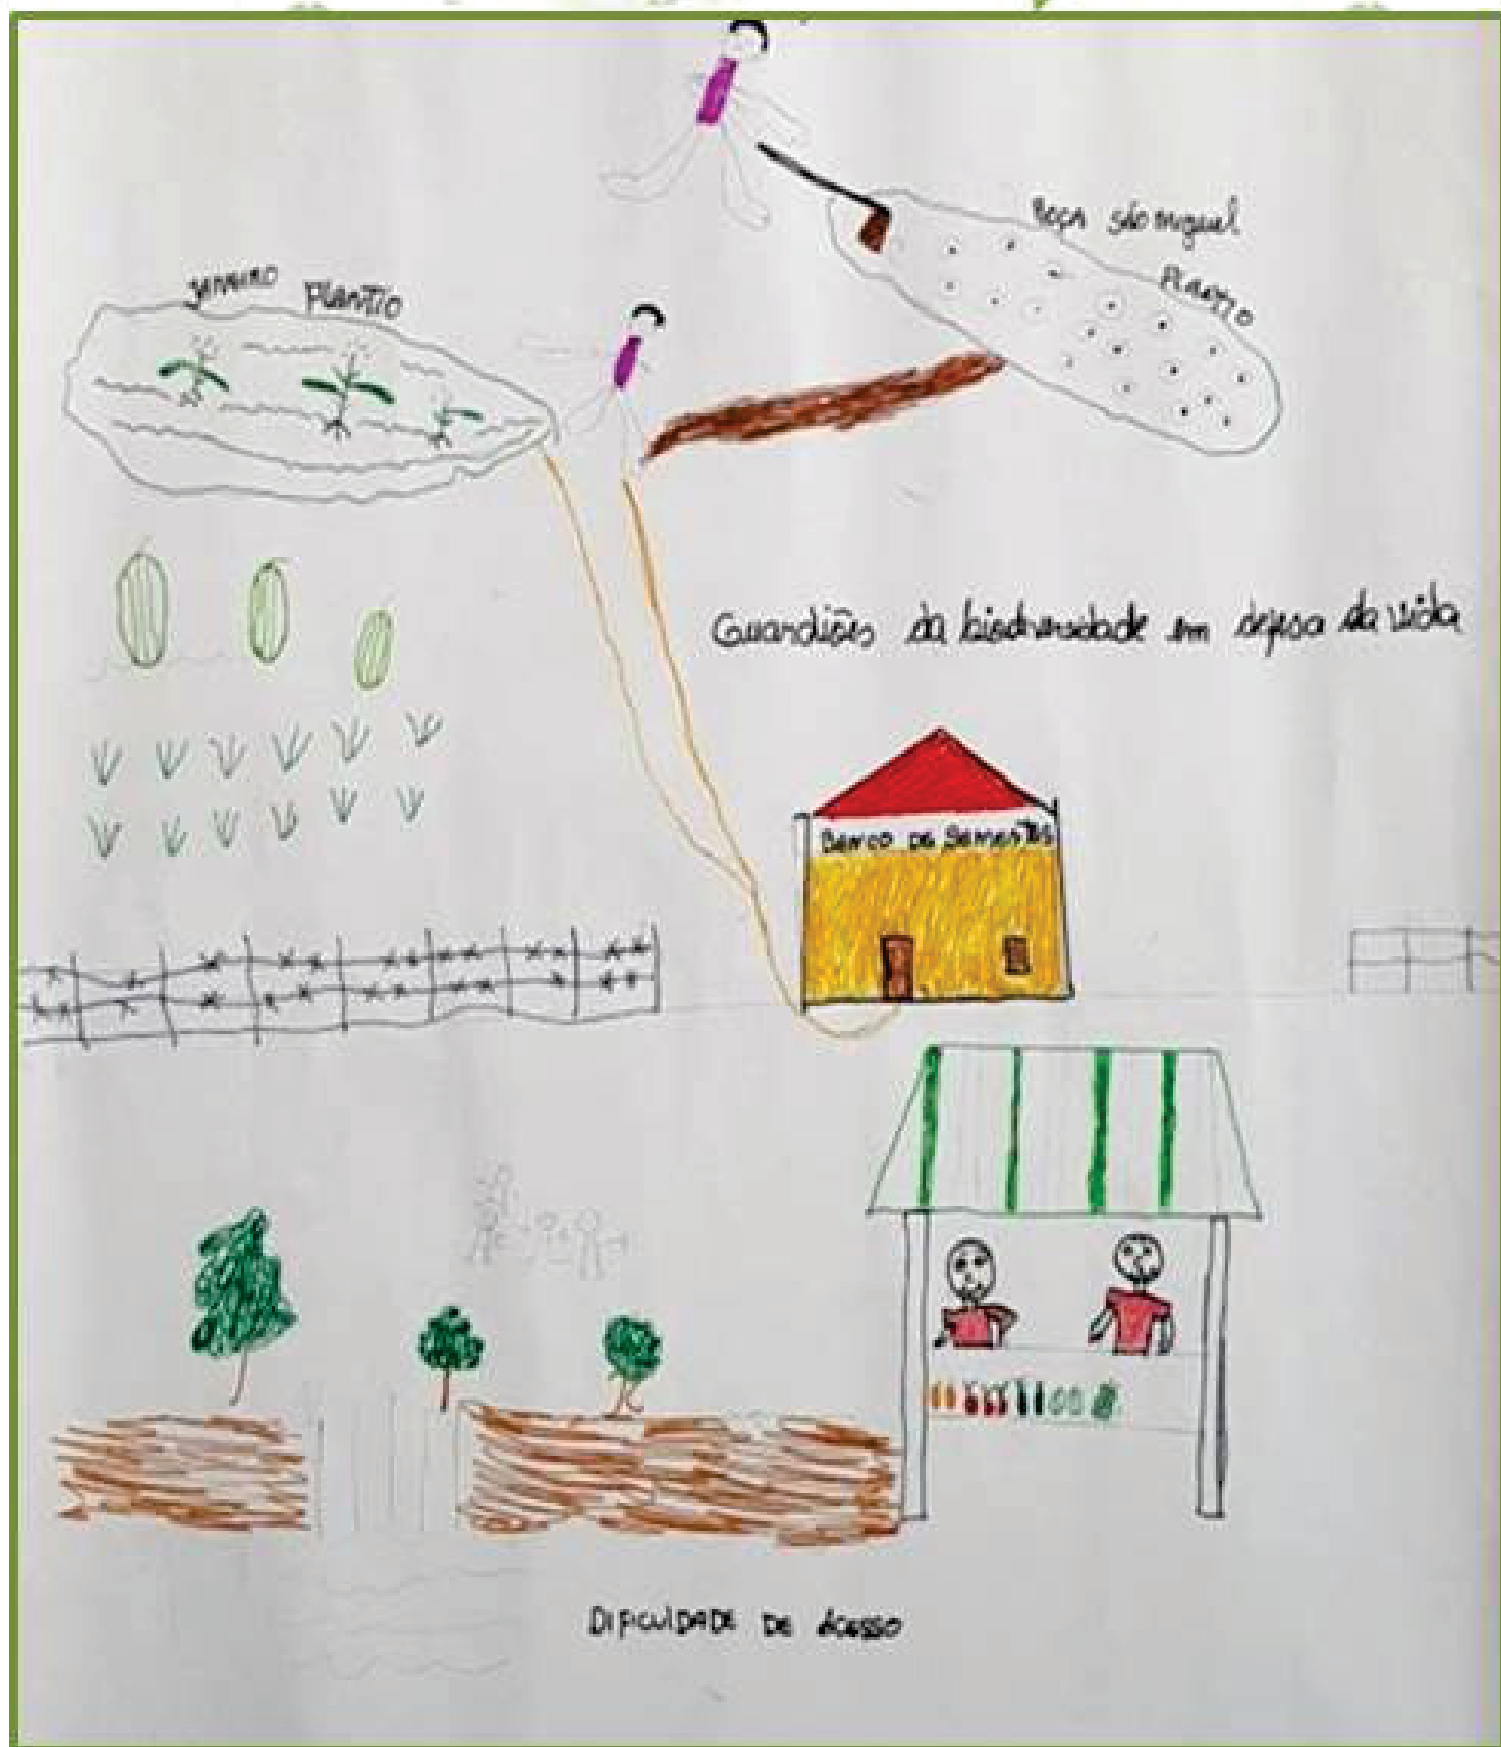 Roça são miguel
Plantio
janeiro Plantio
Guardiões da biodiversidade em defesa da vida
Banco de sementes
Dificuldade de acesso